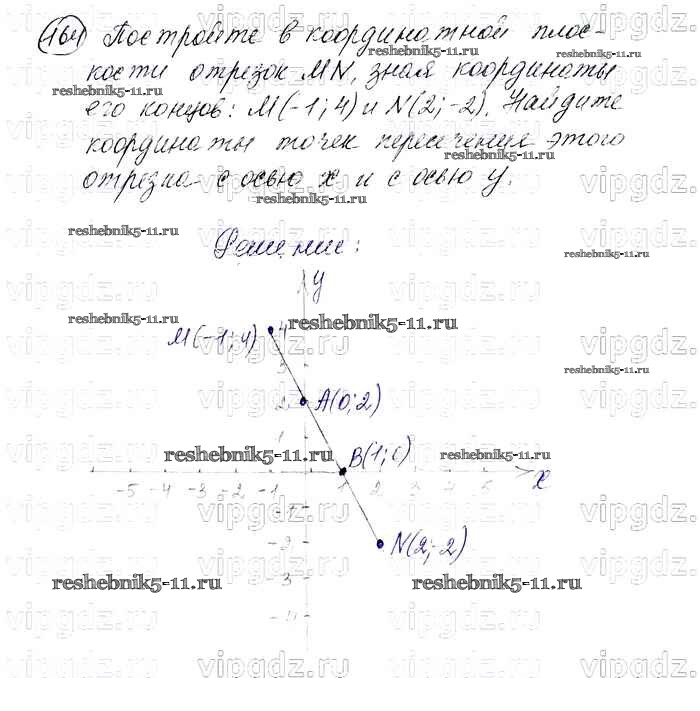 164 Постройте в координатной плос-
кости отрезок MN, зная координаты
его концов: M(-1; 4) и N(2; -2). Найдите
координаты точек пересечения этого
отрезка с осью x и с осью y.
Решение:
y
M(-1; 4)
4
3
A(0; 2)
2
1
B(1; 0)
-5 -4 -3 -2 -1 1 2 3 4 5 x
-1
-2
N(2; -2)
-3
-4
reshebnik5-11.ru
vipgdz.ru